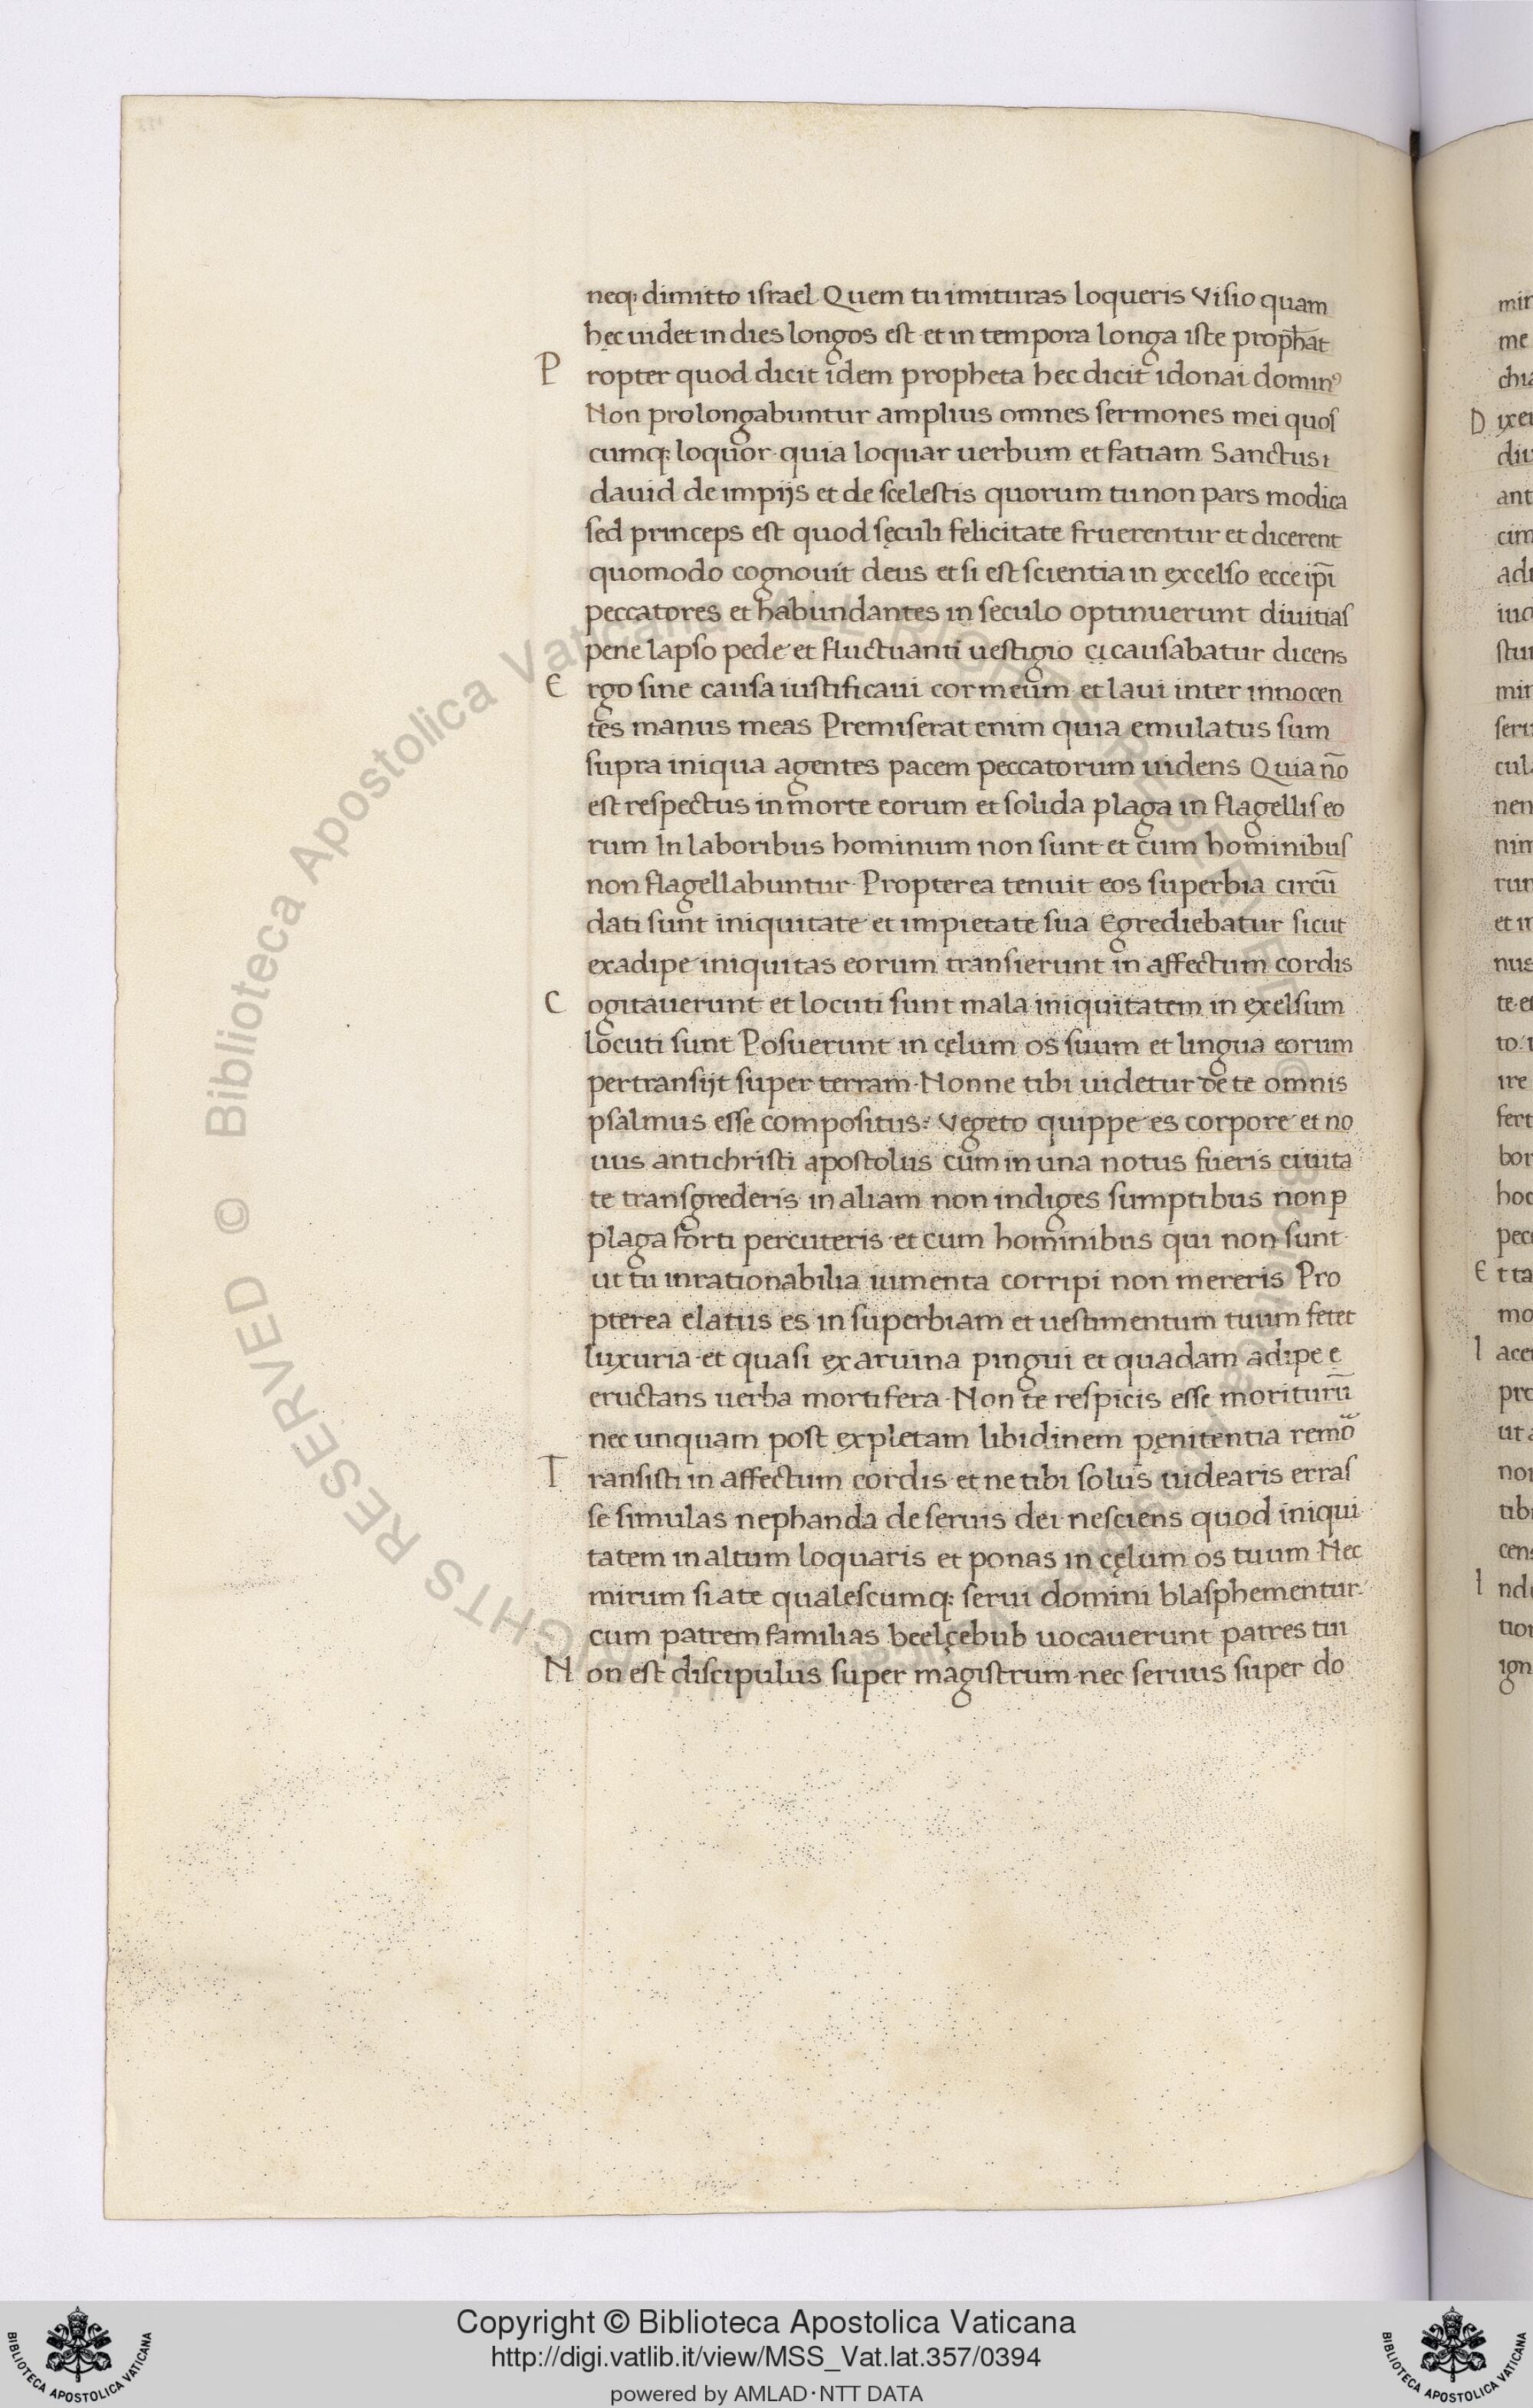 neq; dimitto israel Quem tu imituras loqueris Visio quam
hęc uidet in dies longos est et in tempora longa iste proph̅at
P ropter quod dicit idem propheta hec dicit idonai dominꝰ
Non prolongabuntur amplius omnes sermones mei quos
cumq; loquor quia loquar uerbum et fatiam Sanctus ı
dauid de impijs et de scelestis quorum tu non pars modica
sed princeps est quod sęculi felicitate fruerentur et dicerent
quomodo cognouit deus et si est scientia in excelso ecce ip̅i
peccatores et habundantes in seculo optinuerunt diuitias
pene lapso pede et fluctuanti uestigio ci causabatur dicens
E rgo sine causa iustificaui cor meum et laui inter innocen
tes manus meas Premiserat enim quia emulatus sum
supra iniqua agentes pacem peccatorum uidens Quia no̅
est respectus in morte eorum et solida plaga in flagellis eo
rum In laboribus hominum non sunt et cum hominibus
non flagellabuntur Propterea tenuit eos superbia circu̅
dati sunt iniquitate et impietate sua Egrediebatur sicut
ex adipe iniquitas eorum transierunt in affectum cordis
C ogitauerunt et locuti sunt mala iniquitatem in exelsum
locuti sunt Posuerunt in cęlum os suum et lingua eorum
pertransijt super terram Nonne tibi uidetur de te omnis
psalmus esse compositus: Vegeto quippe es corpore et no
uus antichristi apostolus cum in una notus fueris ciuita
te transgrederis in aliam non indiges sumptibus non p
plaga forti percuteris et cum hominibus qui non sunt
ut tu inrationabilia iumenta corripi non mereris Pro
pterea elatus es in superbiam et uestimentum tuum fetet
luxuria et quasi ex aruina pingui et quadam adipe ę
eructans uerba mortifera Non te respicis esse morituru̅
nec unquam post expletam libidinem pęnitentia remo̅
T ransisti in affectum cordis et ne tibi solus uidearis erras
se simulas nephanda de seruis dei nesciens quod iniqui
tatem in altum loquaris et ponas in cęlum os tuum Nec
mirum si a te qualescumq; serui domini blasphementur
cum patrem familias beelçebub uocauerunt patres tui
N on est discipulus super magistrum nec seruus super do
Copyright © Biblioteca Apostolica Vaticana
http://digi.vatlib.it/view/MSS_Vat.lat.357/0394
powered by AMLAD·NTT DATA